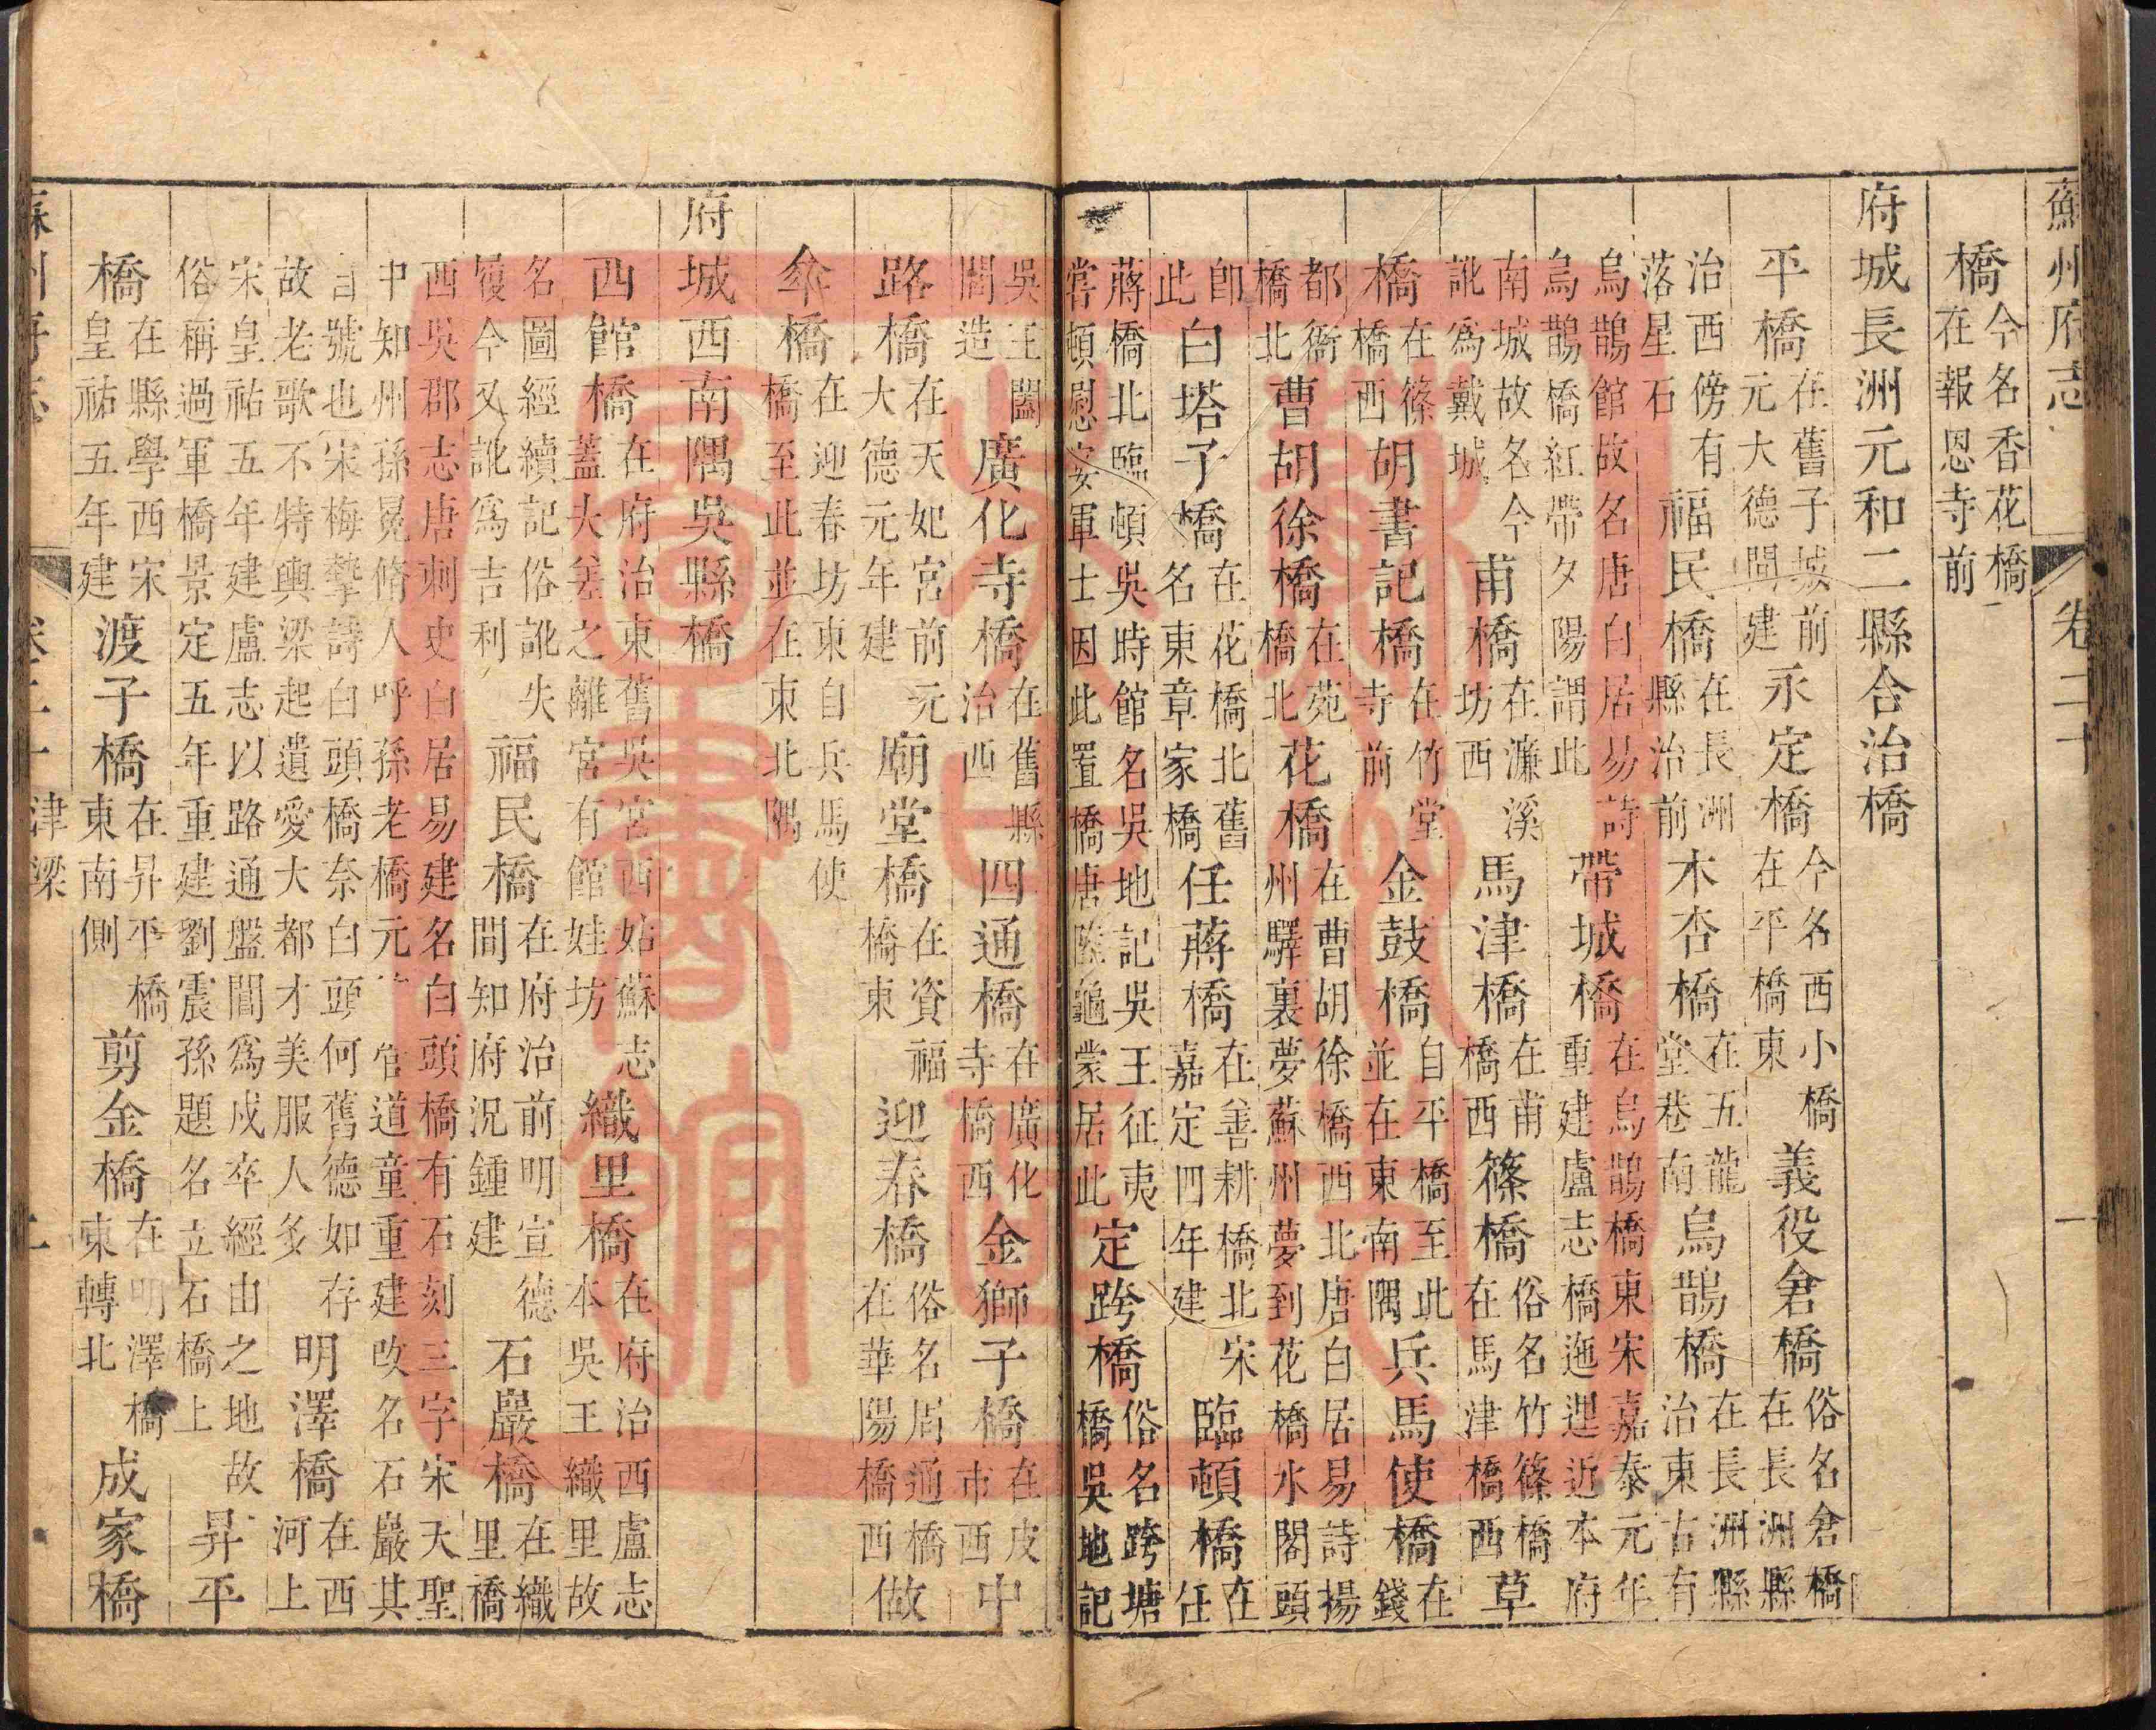 蘇州府志　卷二十　一
橋今名香花橋在報恩寺前
府城長洲元和二縣合治橋
平橋在舊子城前元大德間建永定橋今名西小橋在平橋東義役倉橋俗名倉橋在長洲縣
治西傍有落星石福民橋在長洲縣治前木杏橋在五龍堂巷南烏鵲橋在長洲縣治東古有
烏鵲館故名唐白居易詩烏鵲橋紅帶夕陽謂此帶城橋在烏鵲橋東宋嘉泰元年重建盧志橋迤邐近本府
南城故名今訛為戴城甫橋在濂溪坊西馬津橋在甫橋西篠橋俗名竹篠橋在馬津橋西草
橋在篠橋西胡書記橋在竹堂寺前金鼓橋自平橋至此並在東南隅兵馬使橋在錢
都衙橋北曹胡徐橋在苑橋北花橋在曹胡徐橋西北唐白居易詩揚州驛裏夢蘇州夢到花橋水閣頭
即此白塔子橋在花橋北舊名東章家橋任蔣橋在善耕橋北宋嘉定四年建臨頓橋在任
蔣橋北臨頓吳時館名吳地記吳王征夷嘗頓慰安軍士因此置橋唐陸龜蒙居此定跨橋俗名跨塘橋吳地記
吳王闔閭造廣化寺橋在舊縣治西四通橋在廣化寺橋西金獅子橋在皮市西中
路橋在天妃宮前元大德元年建廟堂橋在資福橋東迎春橋俗名周通橋在華陽橋西做
傘橋在迎春坊東自兵馬使橋至此並在東北隅
府城西南隅吳縣橋
西館橋在府治東舊吳宮西姑蘇志蓋夫差之離宮有館娃坊織里橋在府治西盧志本吳王織里故
名圖經續記俗訛失履今又訛為吉利福民橋在府治前明宣德間知府況鍾建石巖橋在織里橋
西吳郡志唐刺史白居易建名白頭橋有石刻三字宋天聖中知州孫冕脩人呼孫老橋元官道童重建改名石巖其
自號也宋梅摯詩白頭橋奈白頭何舊德如存故老歌不特輿梁起遺愛大都才美服人多明澤橋在西河上
宋皇祐五年建盧志以路通盤閶為戍卒經由之地故俗稱過軍橋景定五年重建劉震孫題名立石橋上昇平
橋在縣學西宋皇祐五年建渡子橋在昇平橋東南側剪金橋在明澤橋東轉北成家橋
蘇州府志　卷二十　津梁　二